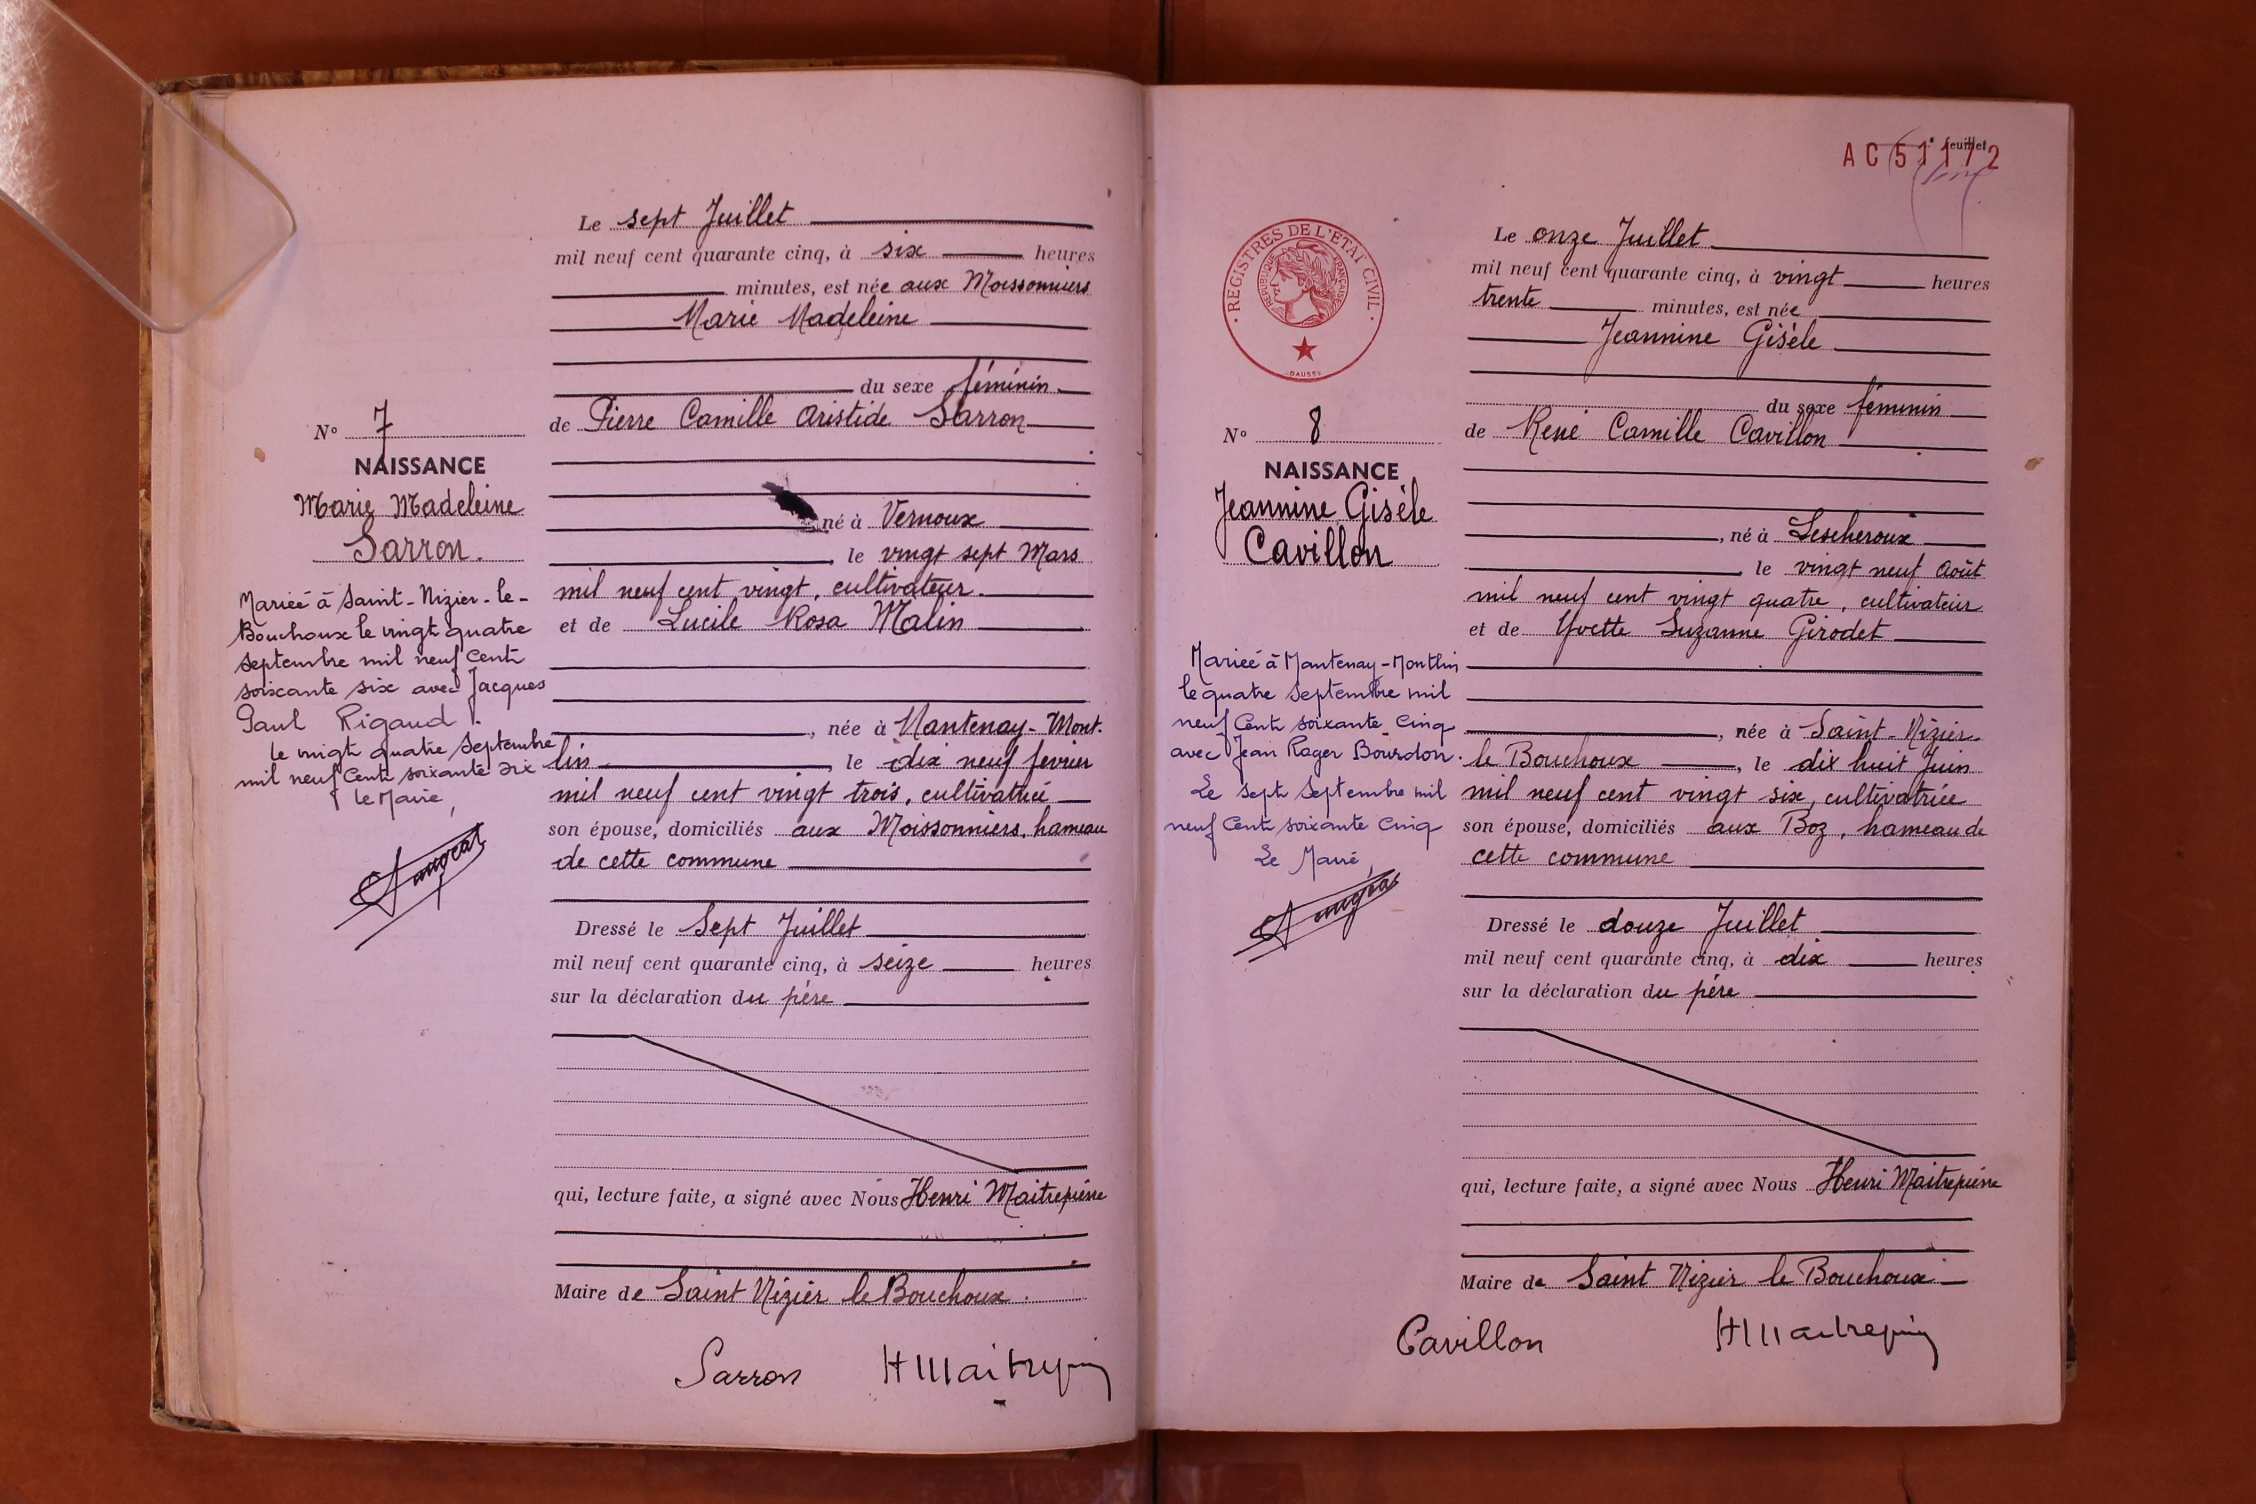 Le sept Juillet
mil neuf cent quarante cinq, à six heures
minutes, est née aux Moissonniers
Marie Madeleine
du sexe féminin
de Pierre Camille Aristide Sarron
N° 7
NAISSANCE
Marie Madeleine
Sarron.
né à Vernoux
, le vingt sept Mars
mil neuf cent vingt, cultivateur.
et de Lucile Rosa Malin
, née à Mantenay-Mont.
lin, le dix neuf février
mil neuf cent vingt trois, cultivatrice
son épouse, domiciliés aux Moissonniers, hameau
de cette commune
Mariée à Saint-Nizier-le-
Bouchoux le vingt quatre
septembre mil neuf cent
soixante six avec Jacques
Paul Rigaud.
le vingt quatre Septembre
mil neuf cent soixante six
le Maire,
Dressé le Sept Juillet
mil neuf cent quarante cinq, à seize heures
sur la déclaration du père
qui, lecture faite, a signé avec Nous Henri Maitrepierre
Maire de Saint Nizier le Bouchoux.
Sarron HMaitrepierre
AC 51172
feuillet
REGISTRES DE L'ETAT CIVIL
REPUBLIQUE FRANÇAISE
DAUSSY
Le onze Juillet
mil neuf cent quarante cinq, à vingt heures
trente minutes, est née
Jeannine Gisèle
du sexe féminin
de René Camille Cavillon
N° 8
NAISSANCE
Jeannine Gisèle
Cavillon
, né à Lescheroux
le vingt neuf Août
mil neuf cent vingt quatre, cultivateur
et de Yvette Suzanne Girodet
, née à Saint-Nizier-
le Bouchoux, le dix huit Juin
mil neuf cent vingt six, cultivatrice
son épouse, domiciliés aux Boz, hameau de
cette commune
Mariée à Mantenay-Montlin
le quatre Septembre mil
neuf Cent soixante Cinq
avec Jean Roger Bourdon.
Le Sept Septembre mil
neuf Cent soixante Cinq
Le Maire,
Dressé le douze Juillet
mil neuf cent quarante cinq, à dix heures
sur la déclaration du père
qui, lecture faite, a signé avec Nous Henri Maitrepierre
Maire de Saint Nizier le Bouchoux
Cavillon HMaitrepierre